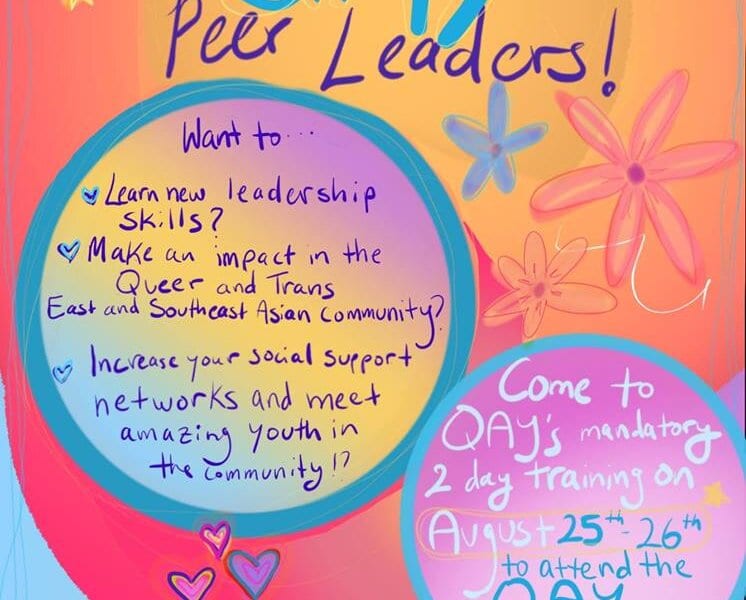 Peer Leaders!
Want to...
Learn new leadership
skills?
Make an impact in the
Queer and Trans
East and Southeast Asian Community?
Increase your social support
networks and meet
amazing youth in
the community!?
Come to
QAY's mandatory
2 day training on
August 25th - 26th
to attend the
QAY